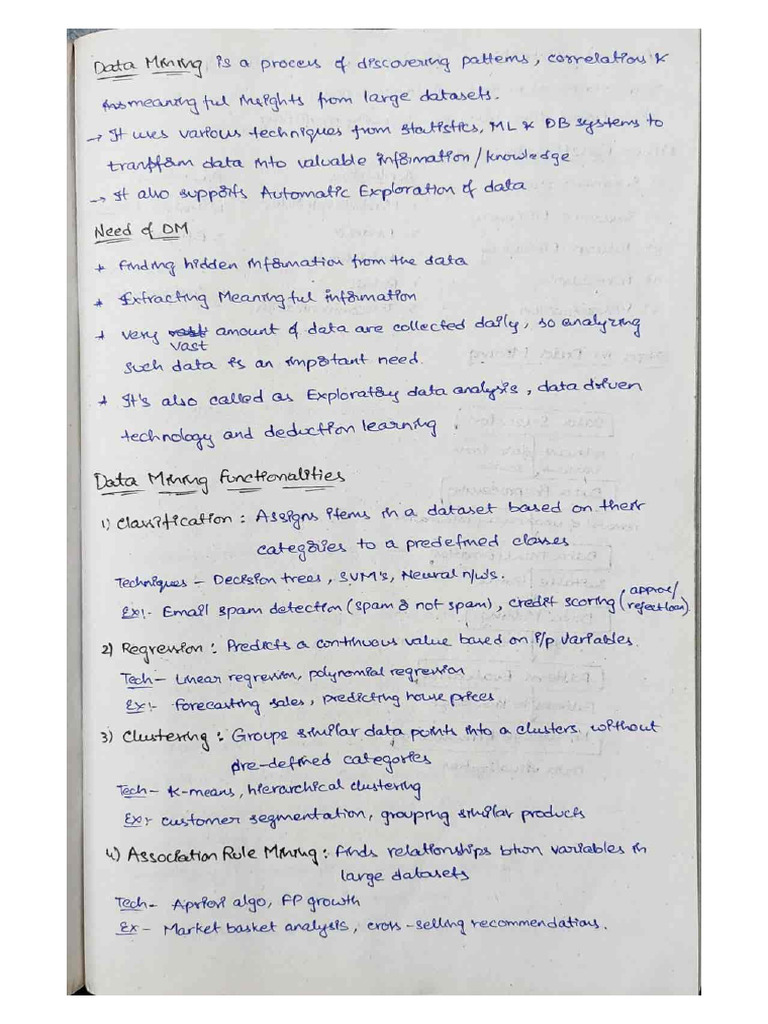 Data Mining is a process of discovering patterns, correlation &
meaningful insights from large datasets.
→ It uses various techniques from statistics, ML & DB systems to
transform data into valuable information/knowledge
→ It also supports Automatic Exploration of data
Need of DM
* finding hidden information from the data
* Extracting Meaningful information
* very vast amount of data are collected daily, so analyzing
such data is an important need.
* It's also called as Exploratory data analysis, data driven
technology and deduction learning.
Data Mining functionalities
1) Classification: Assigns items in a dataset based on their
categories to a predefined classes
Techniques - Decision trees, SVM's, Neural n/w's.
Ex:- Email spam detection (spam or not spam), credit scoring (approve/
reject loan)
2) Regression: Predicts a continuous value based on i/p variables.
Tech - Linear regression, polynomial regression
Ex:- forecasting sales, predicting house prices
3) Clustering: Groups similar data points into a clusters, without
pre-defined categories
Tech - K-means, hierarchical clustering
Ex:- customer segmentation, grouping similar products
4) Association Rule Mining: finds relationships btwn variables in
large datasets
Tech - Apriori algo, FP growth
Ex - Market basket analysis, cross-selling recommendations.